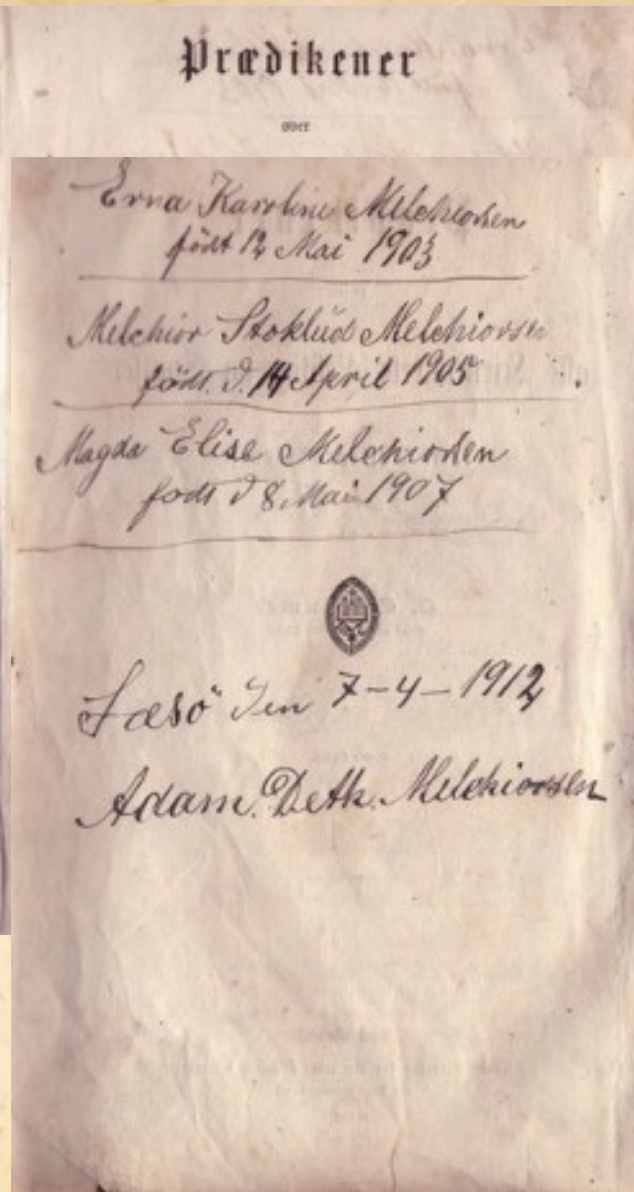 Prædikener
over
Erna Karoline Melchiorsen
födt 12 Mai 1903
Melchior Stoklüd Melchiorsen
födt. d. 14 April 1905
Magda Elise Melchiorsen
fodt d 8. Mai 1907
Læsö den 7-4-1912
Adam. Deth. Melchiorsen